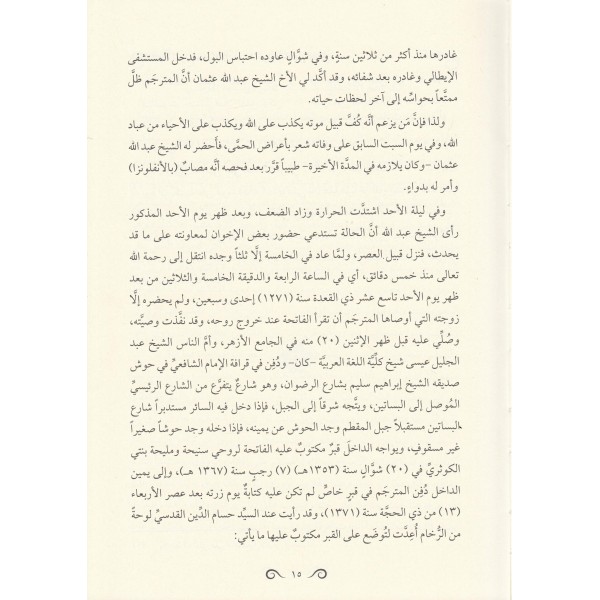 غادرها منذ أكثر من ثلاثين سنةٍ، وفي شوَّالٍ عاوده احتباس البول، فدخل المستشفى
الإيطالي وغادره بعد شفائه، وقد أكَّد لي الأخ الشيخ عبد الله عثمان أنَّ المترجَم ظلَّ
ممتَّعاً بحواسِّه إلى آخر لحظات حياته.
ولذا فإنَّ مَن يزعم أنَّه كُفَّ قبيل موته يكذب على الله ويكذب على الأحياء من عباد
الله، وفي يوم السبت السابق على وفاته شعر بأعراض الحمَّى، فأَحضر له الشيخ عبد الله
عثمان -وكان يلازمه في المدَّة الأخيرة- طبيباً قرَّر بعد فحصه أنَّه مصابٌ (بالأنفلونزا)
وأمر له بدواءٍ.
وفي ليلة الأحد اشتدَّت الحرارة وزاد الضعف، وبعد ظهر يوم الأحد المذكور
رأى الشيخ عبد الله أنَّ الحالة تستدعي حضور بعض الإخوان لمعاونته على ما قد
يحدث، فنزل قبيل العصر، ولمَّا عاد في الخامسة إلَّا ثلثاً وجده انتقل إلى رحمة الله
تعالى منذ خمس دقائق، أي في الساعة الرابعة والدقيقة الخامسة والثلاثين من بعد
ظهر يوم الأحد تاسع عشر ذي القعدة سنة (١٢٧١) إحدى وسبعين، ولم يحضره إلَّا
زوجته التي أوصاها المترجَم أن تقرأ الفاتحة عند خروج روحه، وقد نفَّذت وصيَّته،
وصُلِّي عليه قبل ظهر الإثنين (٢٠) منه في الجامع الأزهر، وأمَّ الناس الشيخ عبد
الجليل عيسى شيخ كلِّيَّة اللغة العربيَّة -كان- ودُفِن في قرافة الإمام الشافعيِّ في حوش
صديقه الشيخ إبراهيم سليم بشارع الرضوان، وهو شارعٌ يتفرَّع من الشارع الرئيسيِّ
المُوصل إلى البساتين، ويتَّجه شرقاً إلى الجبل، فإذا دخل فيه السائر مستدبراً شارع
البساتين مستقبلاً جبل المقطم وجد الحوش عن يمينه، فإذا دخله وجد حوشاً صغيراً
غير مسقوفٍ، ويواجه الداخلَ قبرٌ مكتوبٌ عليه الفاتحة لروحي سنيحة ومليحة بنتي
الكوثريِّ في (٢٠) شوَّالٍ سنة (١٣٥٣هـ) (٧) رجبٍ سنة (١٣٦٧ هـ)، وإلى يمين
الداخل دُفِن المترجَم في قبرٍ خاصٍّ لم تكن عليه كتابةٌ يوم زرته بعد عصر الأربعاء
(١٣) من ذي الحجَّة سنة (١٣٧١)، وقد رأيت عند السيِّد حسام الدِّين القدسيِّ لوحةً
من الرُّخام أُعِدَّت لتُوضَع على القبر مكتوبٌ عليها ما يأتي:
١٥